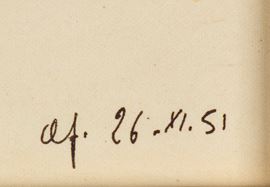 af. 26.XI.51